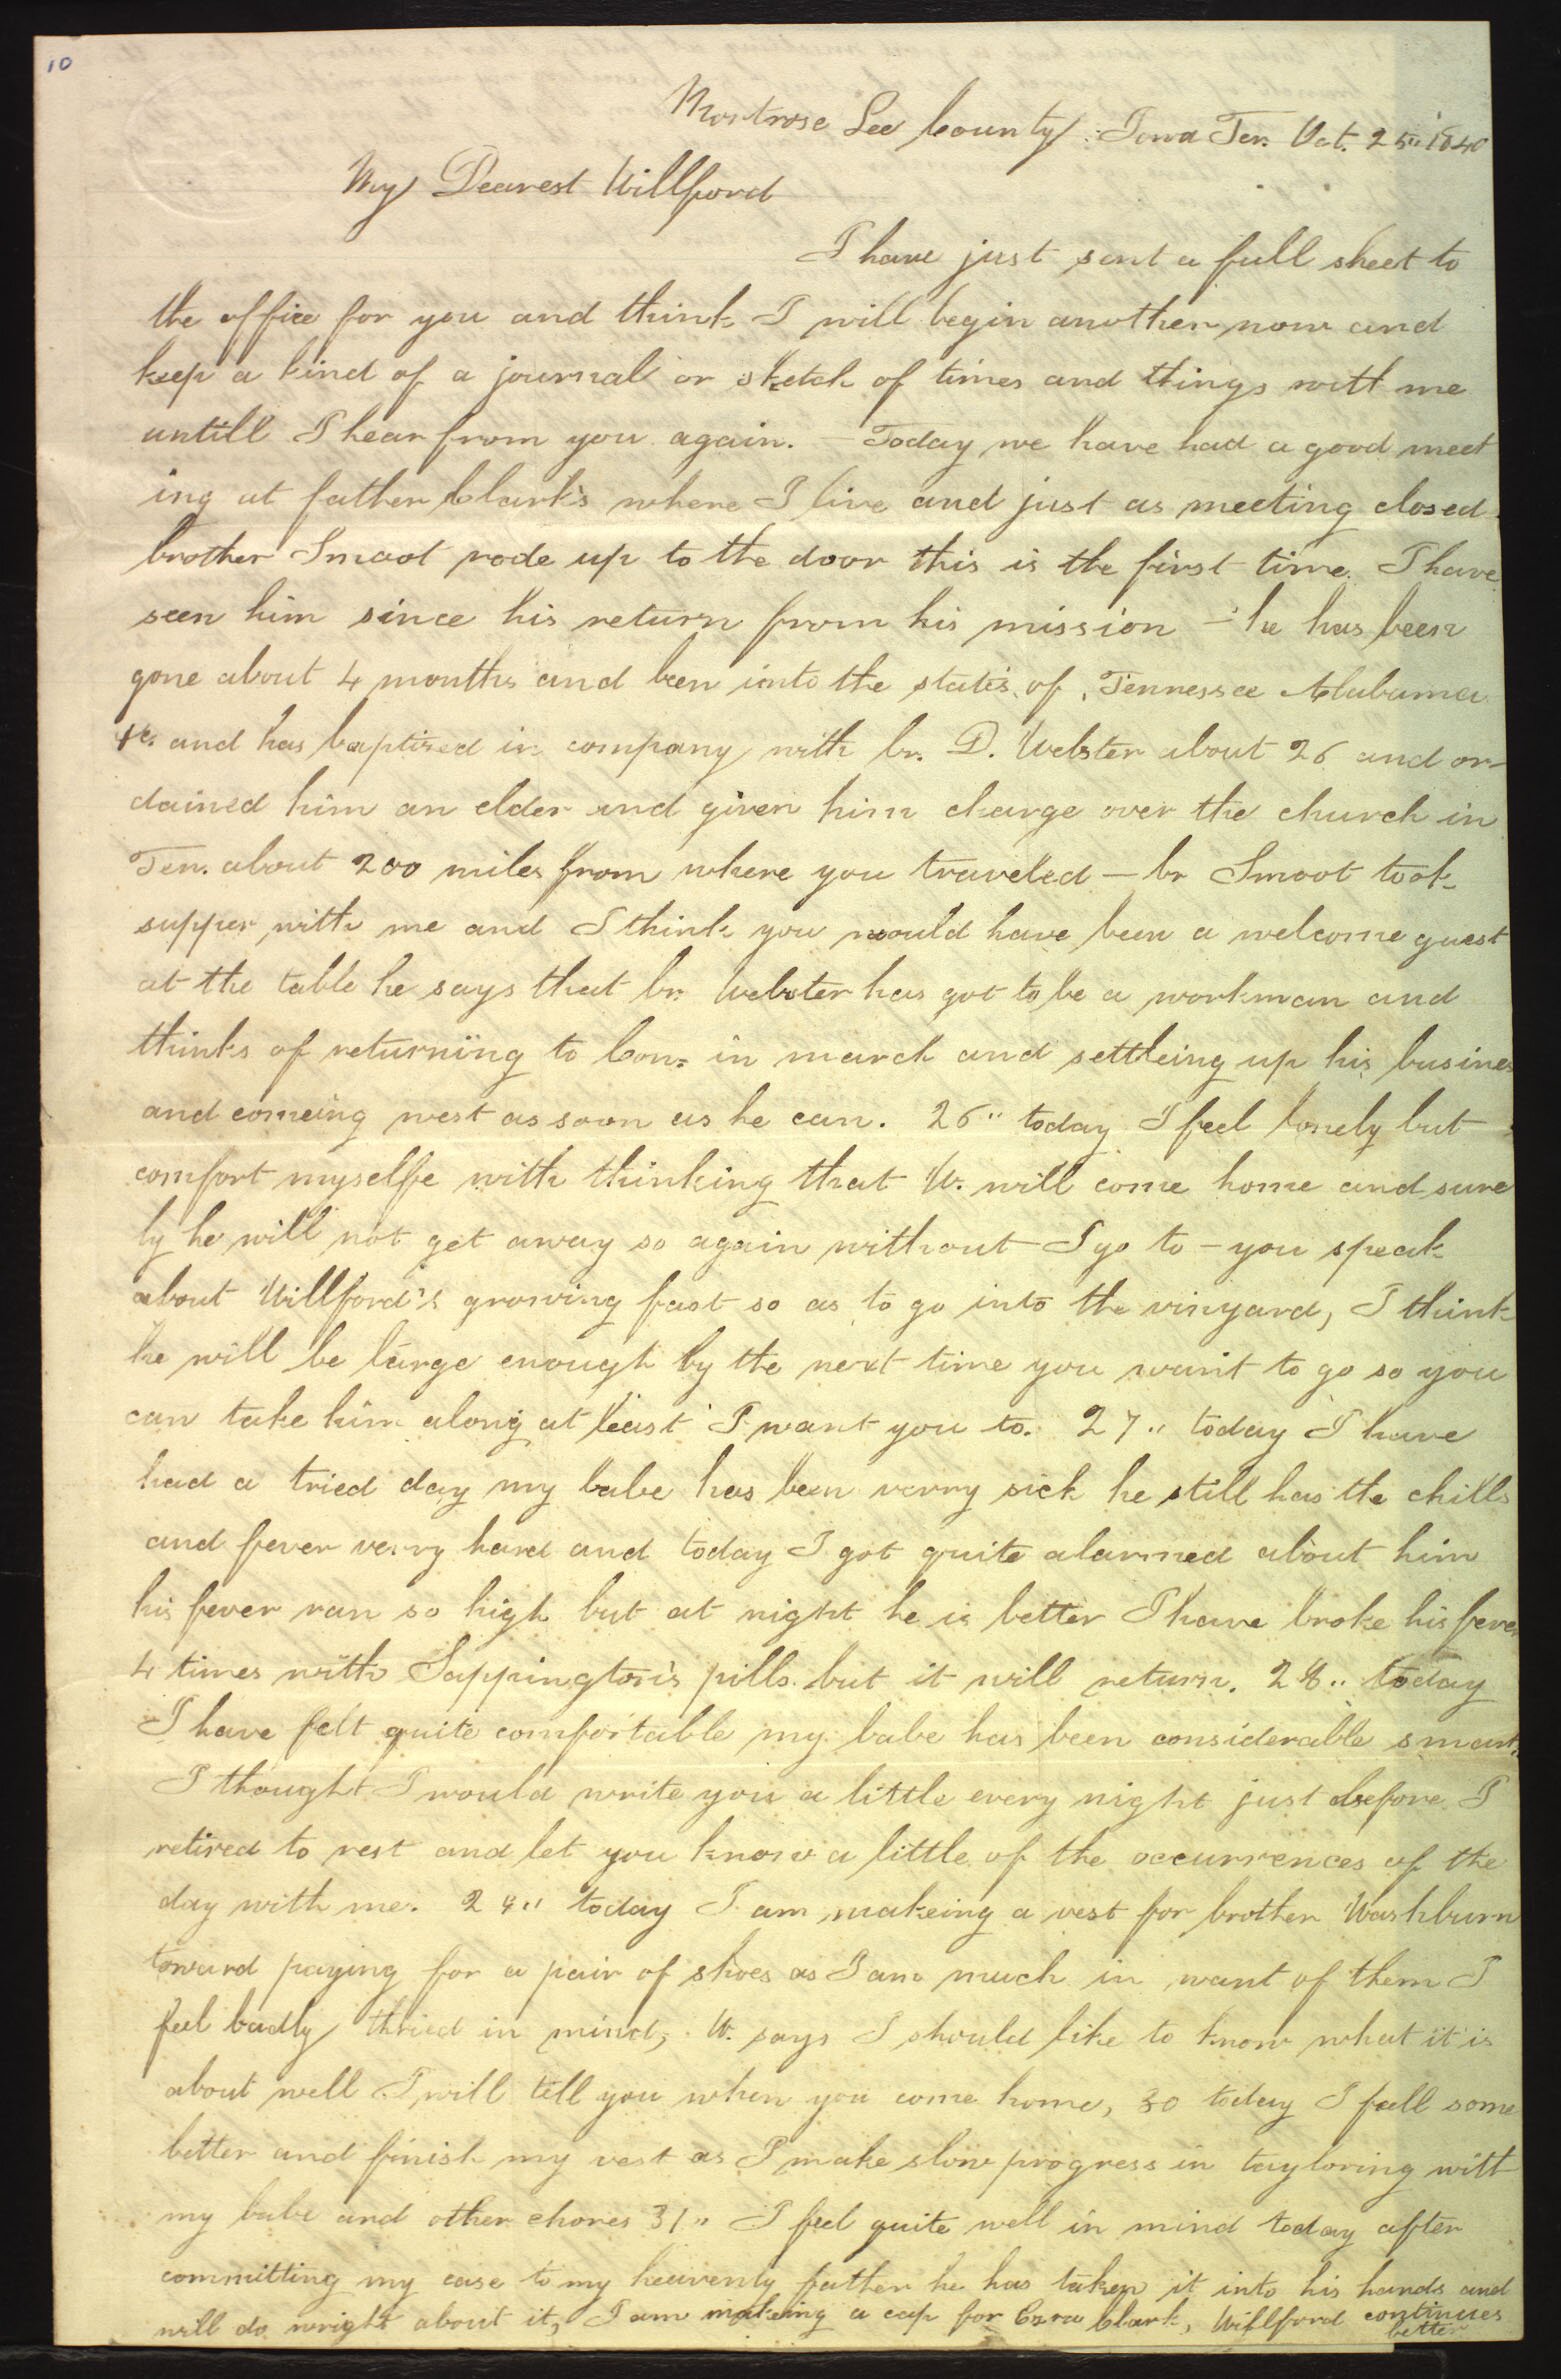 10
Montrose Lee County Iowa Ter. Oct. 25" 1840
My Dearest Willford
I have just sent a full sheet to
the office for you and think I will begin another now and
keep a kind of a journal or sketch of times and things with me
untill I hear from you again. — Today we have had a good meet
ing at father Clark's where I live and just as meeting closed
brother Smoot rode up to the door this is the first time I have
seen him since his return from his mission — he has been
gone about 4 months and been into the states of Tennessee Alabama
&c. and has baptised in company with br. D. Webster about 26 and or-
dained him an elder and given him charge over the church in
Ten. about 200 miles from where you traveled — br Smoot took
supper with me and I think you would have been a welcome guest
at the table he says that br. Webster has got to be a workman and
thinks of returning to Con. in march and settleing up his busines
and comeing west as soon as he can. 26" today I feel lonely but
comfort myselfe with thinking that W. will come home and sure
ly he will not get away so again without I go to — you speak
about Willford's growing fast so as to go into the vinyard, I think
he will be large enough by the next time you want to go so you
can take him along at least I want you to. 27" today I have
had a tried day my babe has been verry sick he still has the chills
and fever verry hard and today I got quite alarmed about him
his fever ran so high but at night he is better I have broke his fever
4 times with Sappington's pills but it will return. 28" today
I have felt quite comfortable my babe has been considerable smart.
I thought I would write you a little every night just before I
retired to rest and let you know a little of the occurrences of the
day with me. 29" today I am makeing a vest for brother Washburn
toward paying for a pair of shoes as I am much in want of them I
feel badly tried in mind, W. says I should like to know what it is
about well I will tell you when you come home, 30 today I feell some
better and finish my vest as I make slow progress in tayloring with
my babe and other chores 31" I feel quite well in mind today after
committing my case to my heavenly father he has taken it into his hands and
will do wright about it, I am makeing a cap for Ezra Clark, Willford continues
better